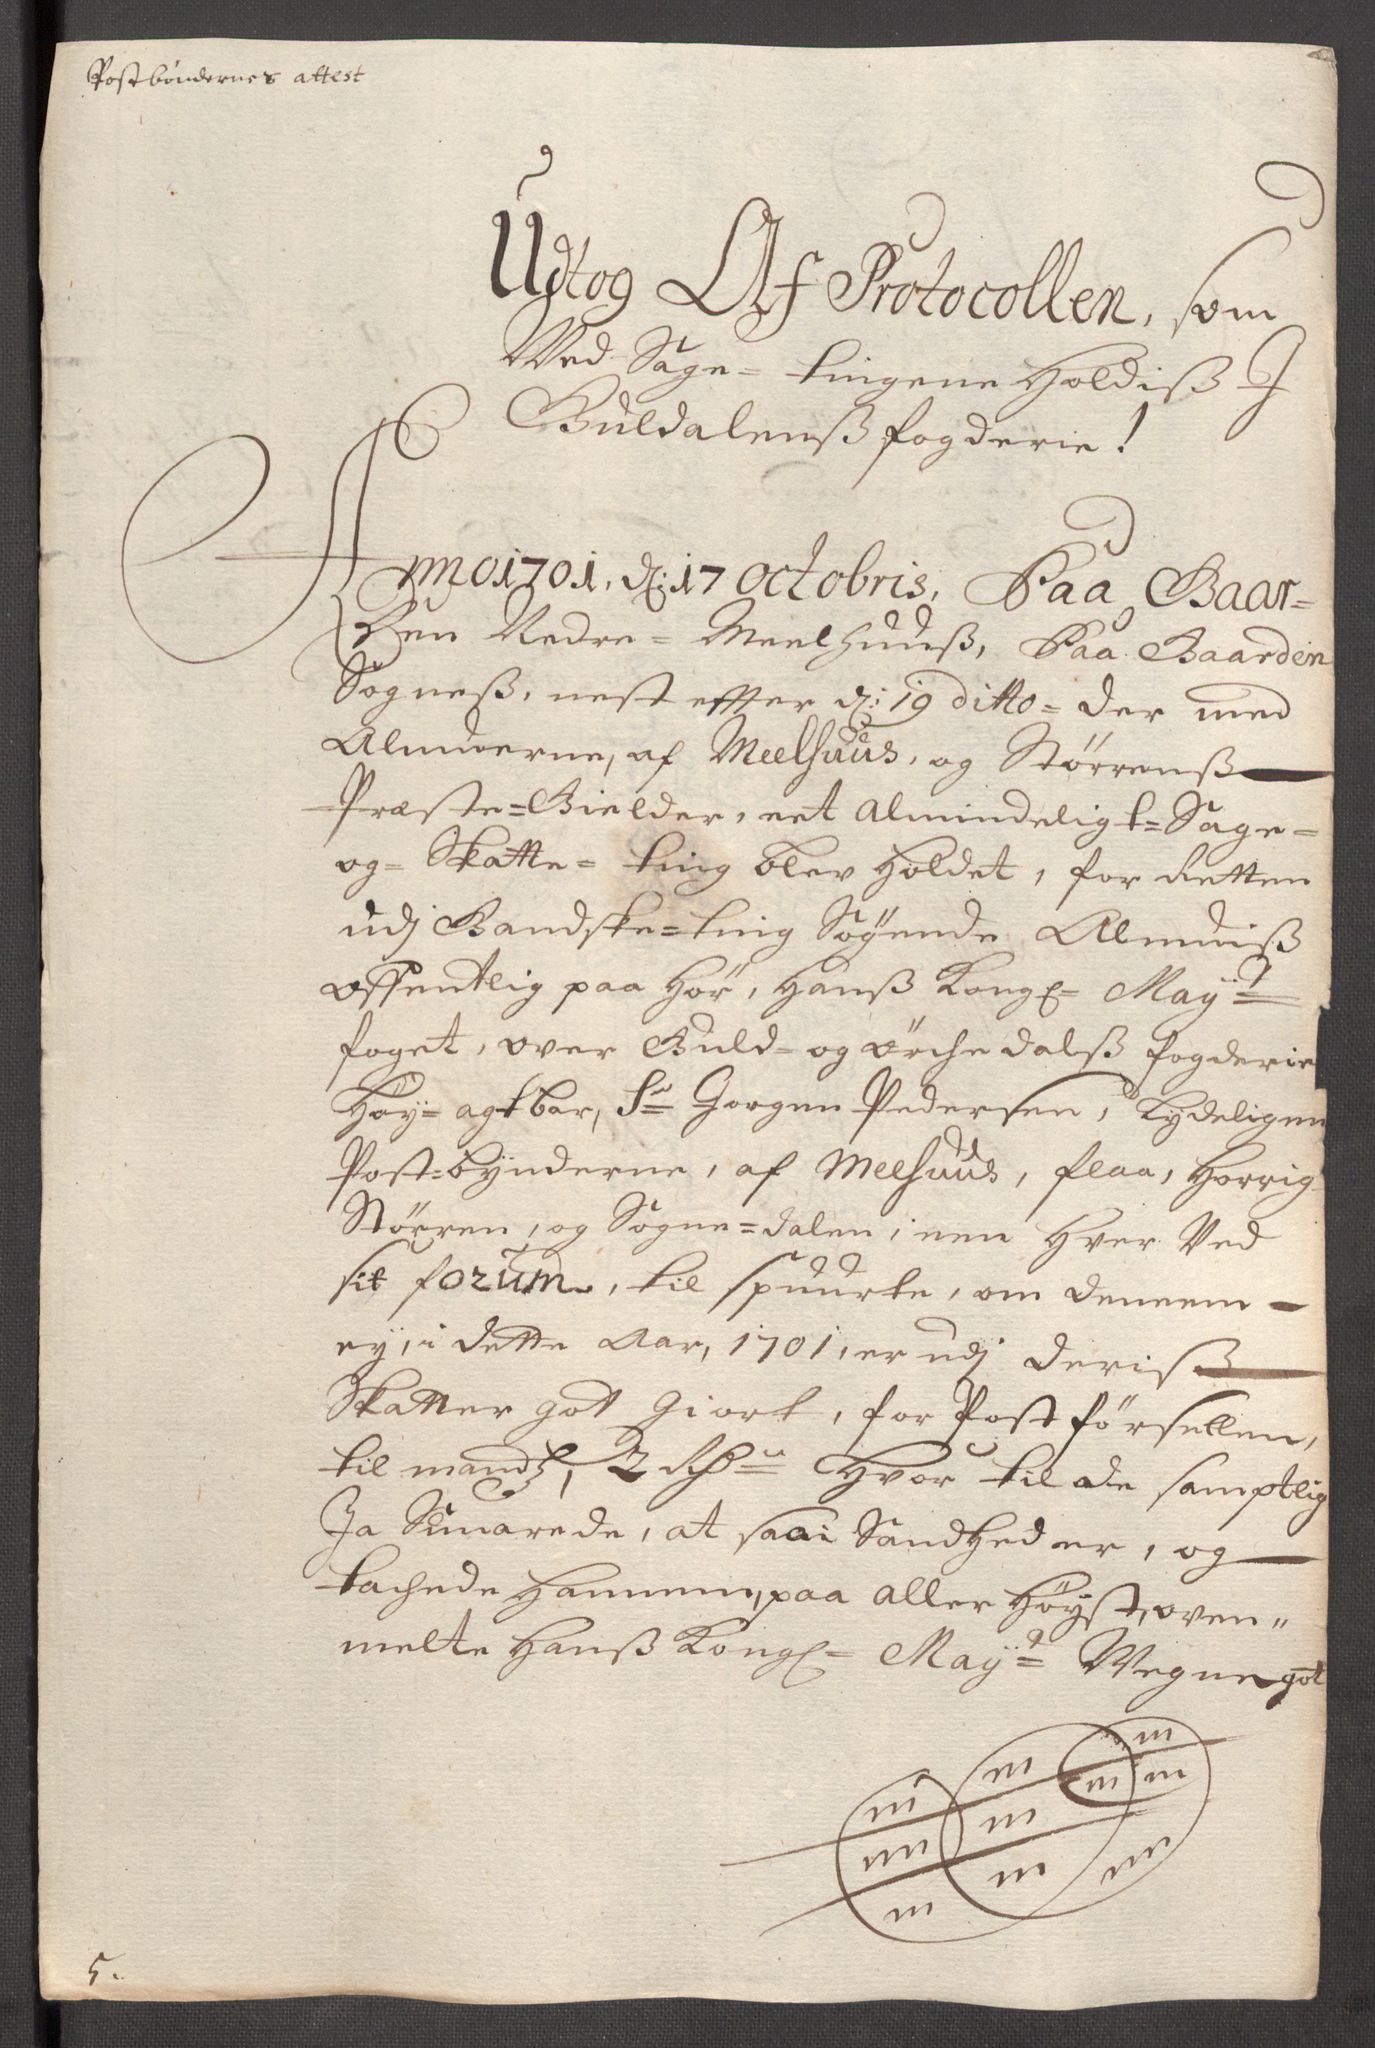 Postbøndernes attest
Udtog Af Protocollen, som
Ved Sage= tingene Holdiß J
Guldalenß fogderie!
Anno 1701, d: 17 octobris, Paa Gaar=
den Nedre= Meelhuuß, Paa Gaarden
Sogneß, nest effter d: 19 ditto= der med
Almuerne, af Meelhuus, og Störrenß
Præste=Gielder, eet Almindeligt= Sage=
og= Skatte= ting blev Holdet, for Retten
udj Bandske=ting Søgende Almuiß
offentlig paa Hör, Hanß Kongl= Mayt
foget, over Guld= og örchedalß fogderie
Høy= agtbar, Sr Jørgen Pedersen, Lydeligen
Post=bynderne, af Meelhuus, flaa, Horrig
Störren, og Sogne=dalen, een Hver Ved
sit forum, til spuurte, om denem
ey, i dette Aar, 1701, er udj deriß
Skatter got Giort, for Postførsellen,
til mands, 2 Rdr Hvor til de samptlig
Ja Suarede, at saa i Sandhed er, og
tachede Hannem, paa aller Høyst, oven"
melte Hanß Kongl= Mayt Wegne got
5.